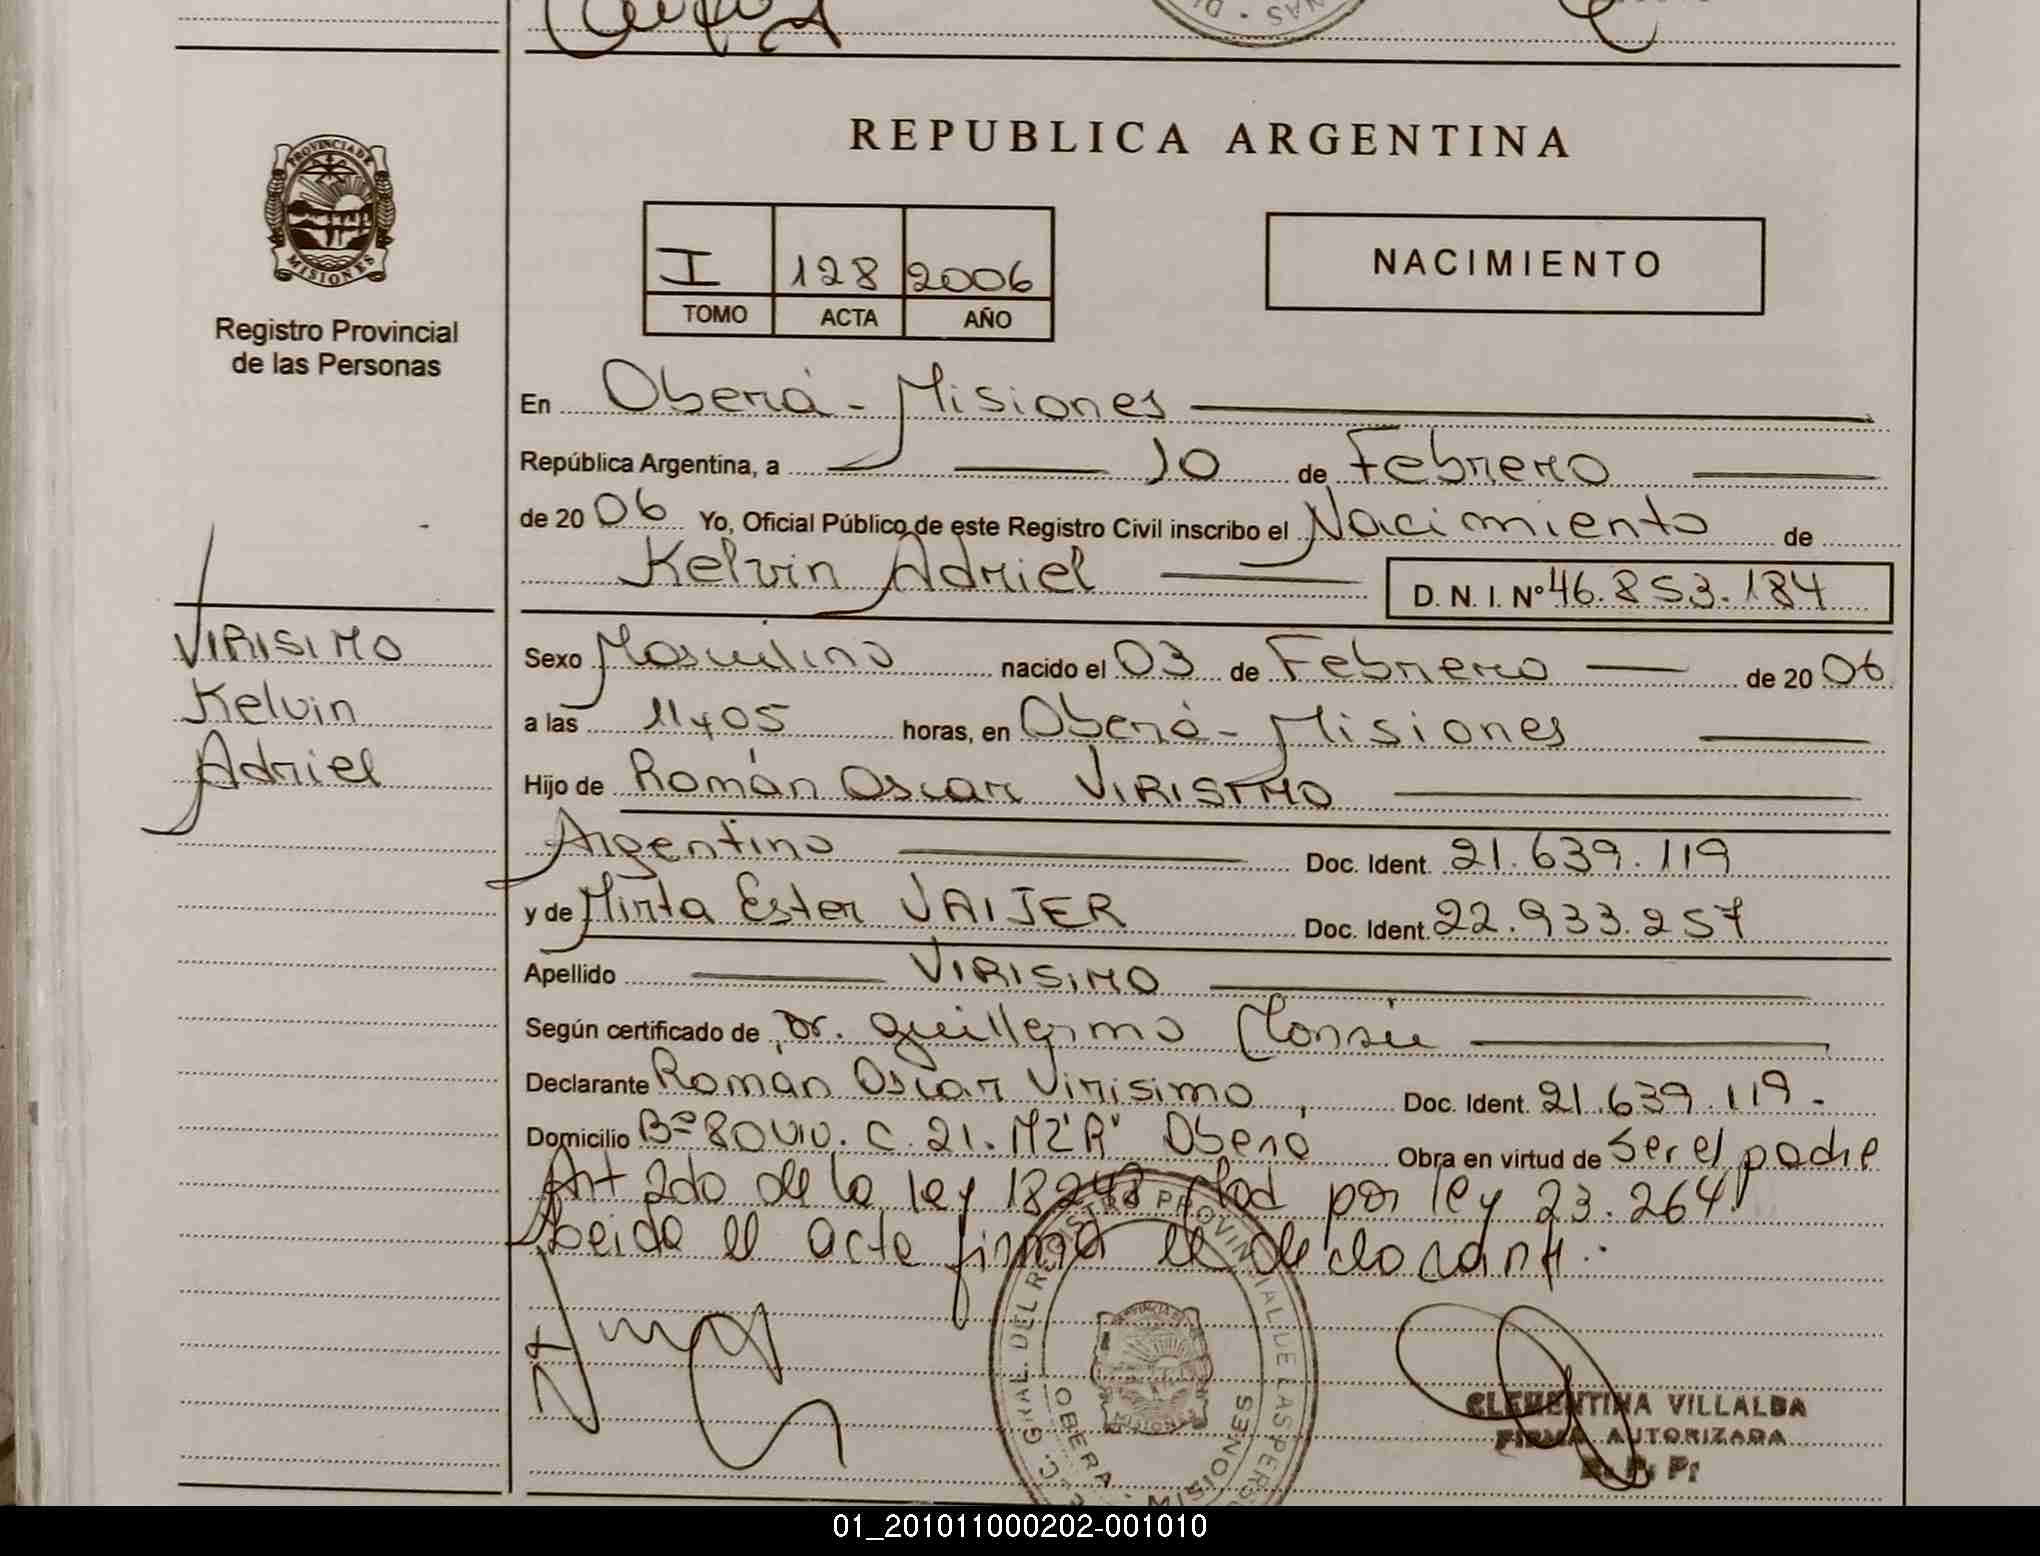 REPUBLICA ARGENTINA
PROVINCIA DE
MISIONES
Registro Provincial
de las Personas
I 128 2006
TOMO ACTA AÑO
NACIMIENTO
En Oberá - Misiones
República Argentina, a 10 de Febrero
de 20 06 Yo, Oficial Público de este Registro Civil inscribo el Nacimiento de
Kelvin Adriel D. N. I. Nº 46.853.184
VIRISIMO
Kelvin
Adriel
Sexo Masculino nacido el 03 de Febrero de 20 06
a las 11 y 05 horas, en Oberá - Misiones
Hijo de Román Oscar VIRISIMO
Argentino Doc. Ident. 21.639.119
y de Mirta Ester VAIJER Doc. Ident. 22.933.257
Apellido VIRISIMO
Según certificado de Dr. Guillermo
Declarante Román Oscar Virisimo, Doc. Ident. 21.639.119.-
Domicilio Bº 80 viv. C. 21. MZ "A" Oberá Obra en virtud de Ser el padre
Art 2do de la ley 18248 Mod por ley 23.264
Leida el acta firma el declarante.
GRAL. DEL REGISTRO PROVINCIAL DE LAS PERSO
OBERA - MISIONES
CLEMENTINA VILLALBA
FIRMA AUTORIZADA
01_201011000202-001010